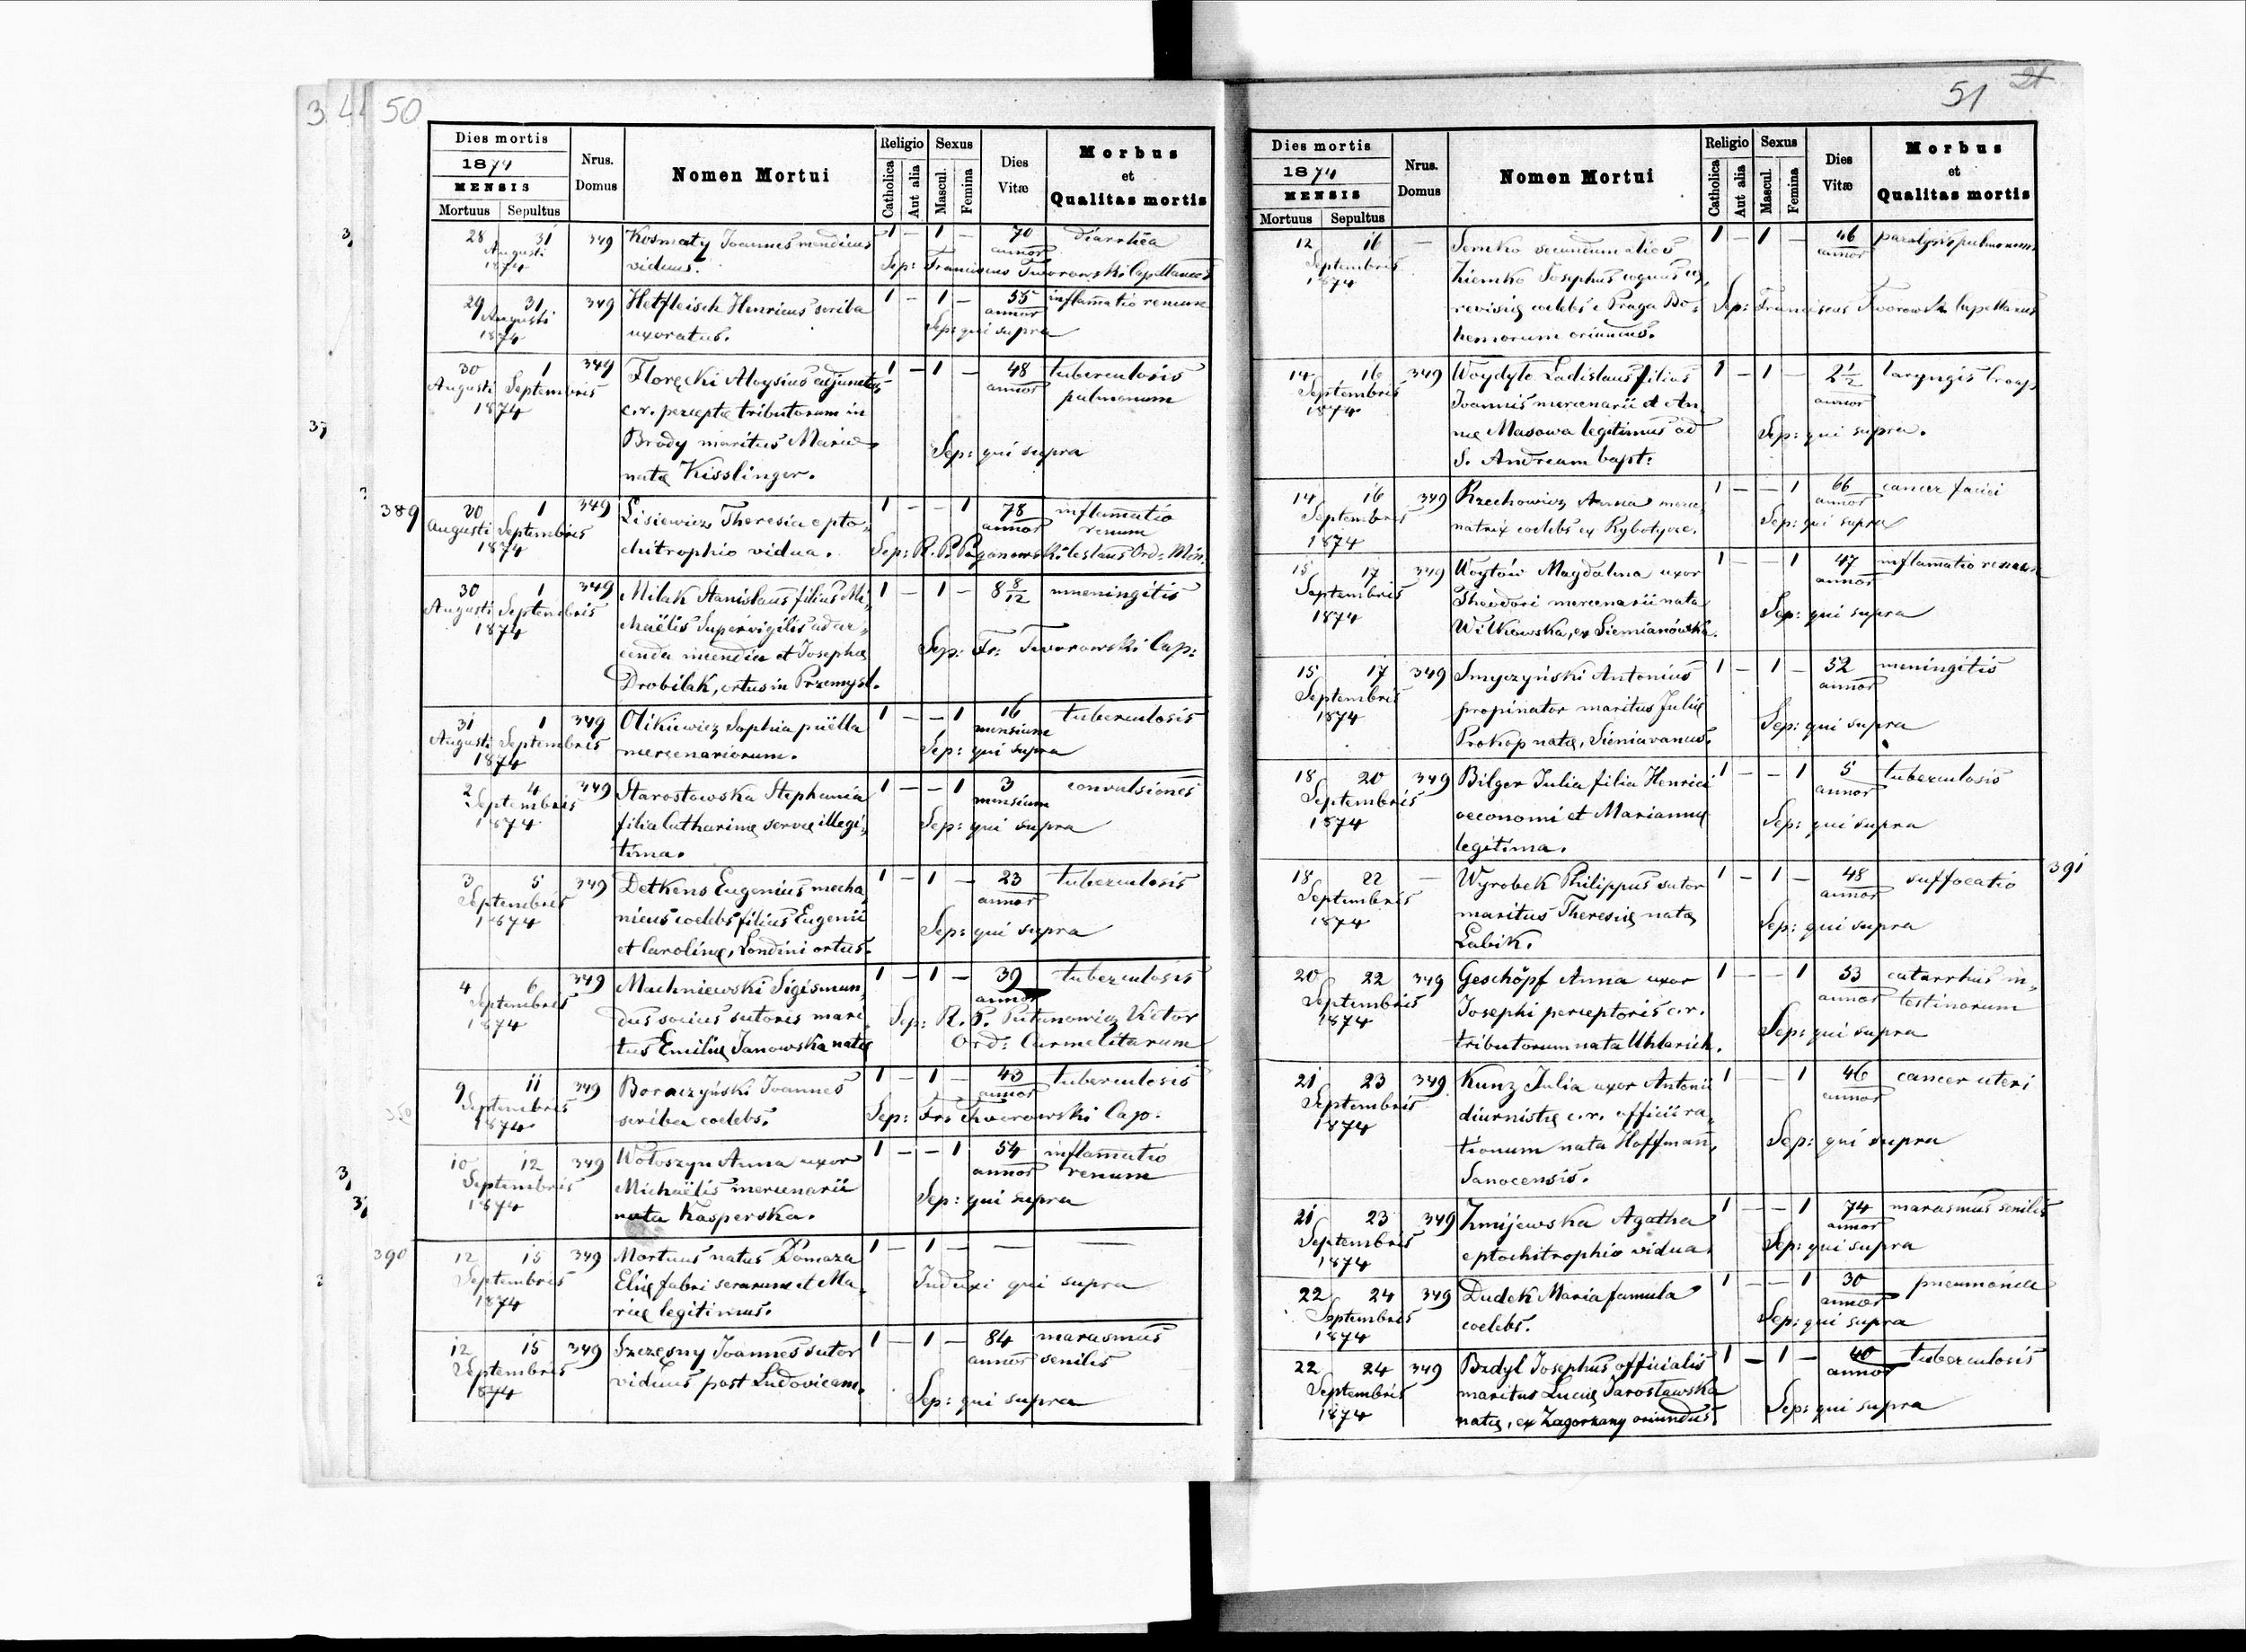 50
Dies mortis
1874
MENSIS
Mortuus Sepultus
Nrus. Domus
Nomen Mortui
Religio
Catholica
Aut alia
Sexus
Mascul.
Femina
Dies Vitæ
Morbus et Qualitas mortis
28 31 349 Kosmaty Joannes mendicus 1 – 1 – 70 diarrhëa
Augusti annor
1874 viduus. Sep: Franciscus Tworowski Capellanus
29 31 349 Hetfleisch Henricus scriba 1 – 1 – 55 inflam̄atio renum
Augusti annor
1874 uxoratus. Sep: qui supra
30 1 349 Floręcki Aloysius adjunctus 1 – 1 – 48 tuberculosis
Augusti Septembris annor pulmonum
1874 c.r. perceptæ tributorum in
Brody maritus Mariæ
Sep: qui supra
natæ Kisslinger.
389
30 1 349 Lisiewicz Theresia e pto- 1 – – 1 78 inflam̄atio
Augusti Septembris annor renum
1874 chitrophio vidua. Sep: R. P. Ord: Min.
30 1 349 Milak Stanislaus filius Mi- 1 – 1 – 8 8/12 meningitis
Augusti Septembris
1874 chaëlis supervigilis ad ar-
cenda incendia et Josephæ Sep: Fr: Tworowski Cap:
Drobilak, ortus in Przemysl.
31 1 349 Olikiewicz Sophia puëlla 1 – – 1 16 tuberculosis
Augusti Septembris mensium
1874 mercenariorum. Sep: qui supra
2 4 349 Starostowska Stephania 1 – – 1 3 convulsiones
Septembris mensium
1874 filia Catharinæ servæ illegi- Sep: qui supra
tima.
3 5 349 Detkens Eugenius mecha 1 – 1 – 23 tuberculosis
Septembris annor
1874 nicus coelebs filius Eugenii Sep: qui supra
et Carolinæ, Londini ortus.
4 6 349 Machniewski Sigismun- 1 – 1 – 39 tuberculosis
Septembris annor
1874 dus socius sutoris mari Sep: R. P. Victor
tus Emiliæ Janowska natæ Ord: Carmelitarum
9 11 349 Boraczyński Joannes 1 – 1 – 43 tuberculosis
Septembris annor
1874 scriba coelebs. Sep: Fr: Tworowski Cap:
10 12 349 Wołoszyn Anna uxor 1 – – 1 54 inflam̄atio
Septembris annor renum
1874 Michaëlis mercenarii Sep: qui supra
nata Kasperska.
390
12 15 349 Mortuus natus Domaza 1 – 1 – — —
Septembris
1874 Eliæ fabri serarum et Ma- Induxi qui supra
riæ legitimus.
12 15 349 Szczęsny Joannes sutor 1 – 1 – 84 marasmus
Septembris annor senilis
1874 viduus post Ludovicam. Sep: qui supra
51
Dies mortis
1874
MENSIS
Mortuus Sepultus
Nrus. Domus
Nomen Mortui
Religio
Catholica
Aut alia
Sexus
Mascul.
Femina
Dies Vitæ
Morbus et Qualitas mortis
12 16 — Semko secundum alios 1 – 1 – 46 paralysis pulmonum
Septembris annor
1874 Ziemko Josephus
revisiæ coelebs e Praga Bo- Sep: Franciscus Tworowski Capellanus
hemorum oriundus.
14 16 349 Woydyło Ladislaus filius 1 – 1 – 2 1/2 laryngis
Septembris annor
1874 Joannis mercenarii et An-
næ Masowa legitimus ad Sep: qui supra.
S. Andream bapt:
14 16 349 Rzechowicz Anna merce 1 – – 1 66 cancer faciei
Septembris annor
1874 natrix coelebs ex Rybotycze. Sep: qui supra
15 17 349 Woytów Magdalena uxor 1 – – 1 47 inflam̄atio renum
Septembris annor
1874 Theodori mercenarii nata Sep: qui supra
Witkowska, ex Siemianówka.
15 17 349 Smyczyński Antonius 1 – 1 – 52 meningitis
Septembris annor
1874 propinator maritus Juliæ Sep: qui supra
Prokop natæ, Sieniavanus.
18 20 349 Bilger Julia filia Henrici 1 – – 1 5 tuberculosis
Septembris annor
1874 oeconomi et Mariannæ Sep: qui supra
legitima.
391
18 22 — Wyrobek Philippus sutor 1 – 1 – 48 suffocatio
Septembris annor
1874 maritus Theresiæ natæ Sep: qui supra
Łabik.
20 22 349 Geschöpf Anna uxor 1 – – 1 53 catarrhus in-
Septembris annor testinorum
1874 Josephi perceptoris c.r. Sep: qui supra
tributorum nata Uhlarich.
21 23 349 Kunz Julia uxor Antonii 1 – – 1 46 cancer uteri
Septembris annor
1874 diurnistæ c.r. officii ra-
tionum nata Hoffman̄, Sep: qui supra
Sanocensis.
21 23 349 Żmijewska Agatha 1 – – 1 74 marasmus senilis
Septembris annor
1874 e ptochitrophio vidua. Sep: qui supra
22 24 349 Dudek Maria famula 1 – – 1 30 pneumonia
Septembris annor
1874 coelebs. Sep: qui supra
22 24 349 Bzdyl Josephus officialis 1 – 1 – 40 tuberculosis
Septembris annor
1874 maritus Luciæ Jarosławska Sep: qui supra
natæ, ex Zagorzany oriundus.